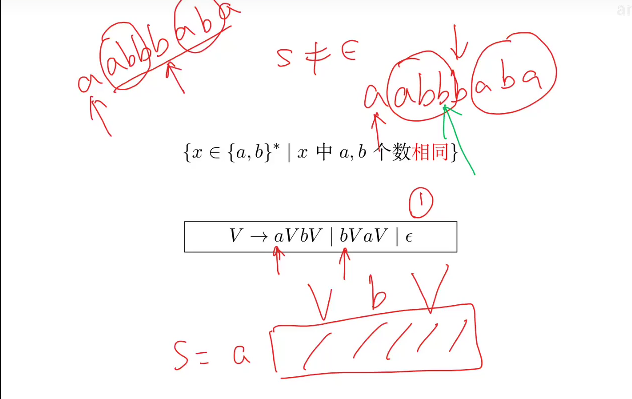 a abbb b aba
S ≠ ϵ
a abb b aba
{x ∈ {a, b}* | x 中 a, b 个数相同}
①
V → aVbV | bVaV | ϵ
V b V
S = a